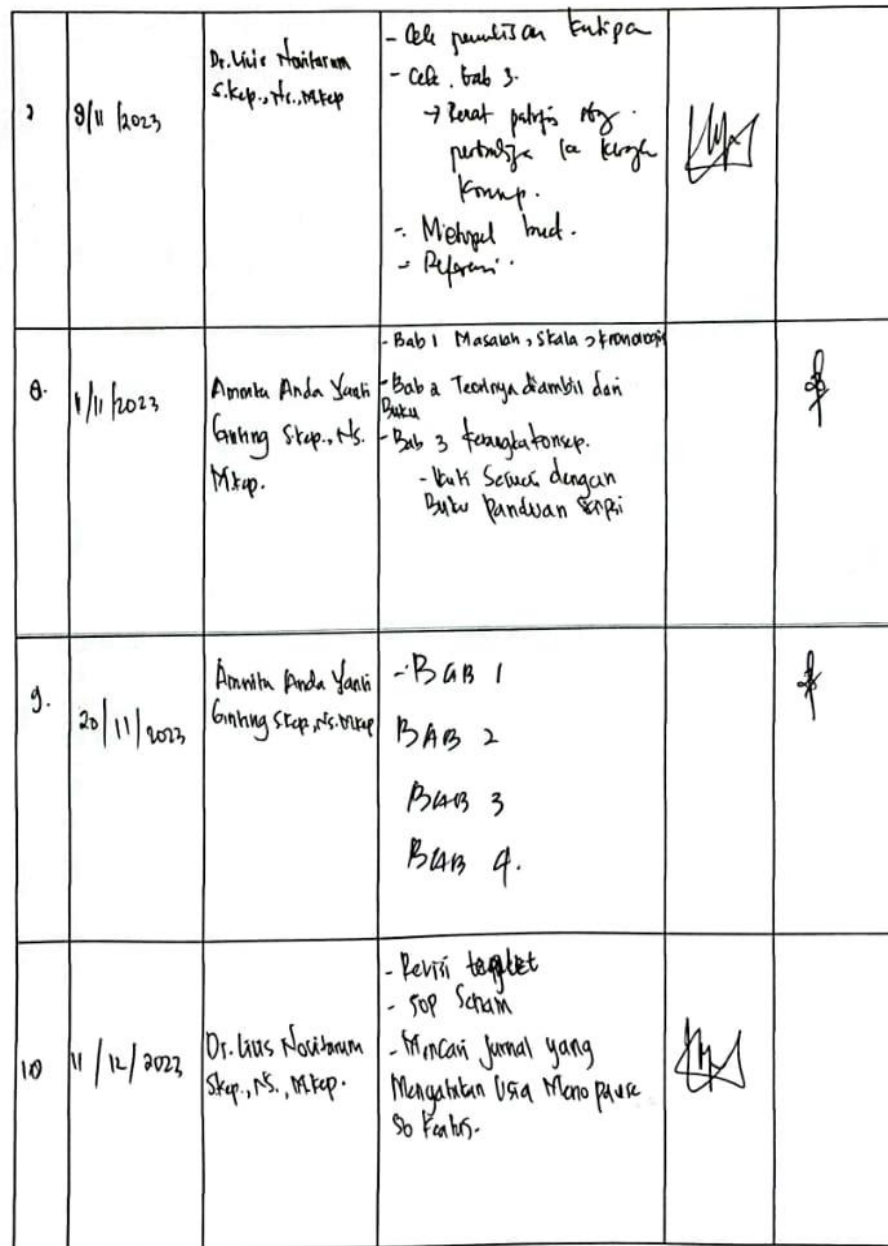 9/11/2023
Dr. Lilis Novitarum
S.Kep., Ns., M.Kep
- Cek penulisan kutipan
- Cek. bab 3.
→
konsep.
-
- Referensi.
8.
1/11/2023
Amnita Anda Yanti
Ginting S.kep., Ns.
M.kep.
- Bab 1 Masalah, Skala, kronologis
- Bab 2 Teorinya diambil dari
Buku
- Bab 3 kerangka konsep.
- Sesuai dengan
Buku Panduan Skripsi
9.
20/11/2023
Amnita Anda Yanti
Ginting S.kep, Ns. M.kep
- BAB 1
BAB 2
BAB 3
BAB 4.
10
11/12/2023
Dr. Lilis Novitarum
S.kep., NS., M.kep.
- Revisi
- SOP Senam
- Mencari Jurnal yang
Mengatakan Usia Menopause
50 keatas.